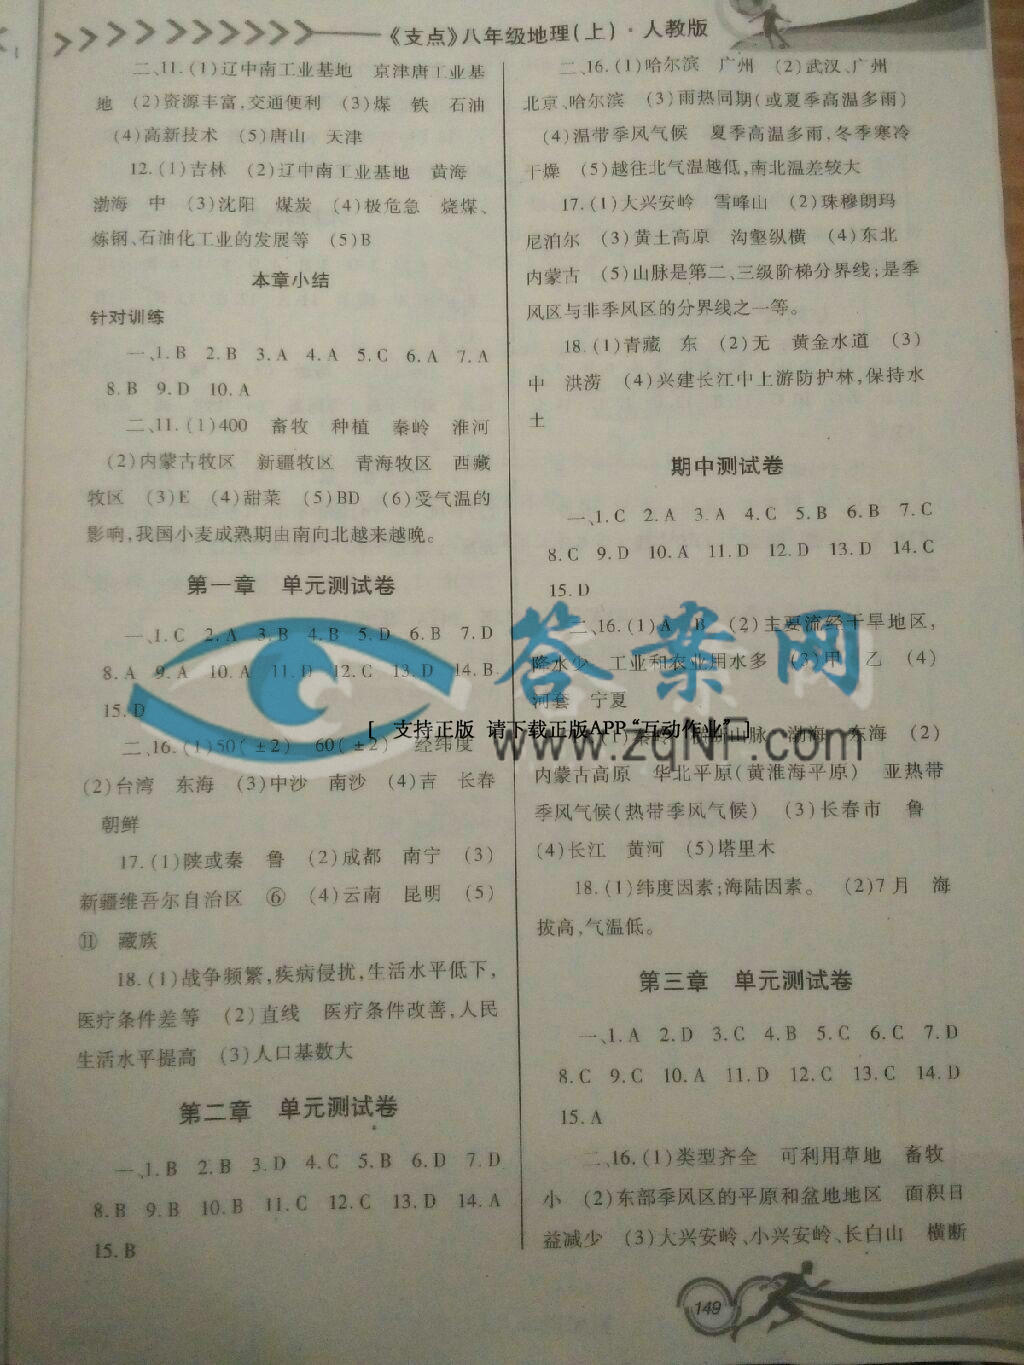 《支点》八年级地理(上)·人教版
二、11.(1)辽中南工业基地 京津唐工业基
地 (2)资源丰富,交通便利 (3)煤 铁 石油
(4)高新技术 (5)唐山 天津
12.(1)吉林 (2)辽中南工业基地 黄海
渤海 中 (3)沈阳 煤炭 (4)极危急 烧煤、
炼钢、石油化工业的发展等 (5)B
本章小结
针对训练
一、1.B 2.B 3.A 4.A 5.C 6.A 7.A
8.B 9.D 10.A
二、11.(1)400 畜牧 种植 秦岭 淮河
(2)内蒙古牧区 新疆牧区 青海牧区 西藏
牧区 (3)E (4)甜菜 (5)BD (6)受气温的
影响,我国小麦成熟期由南向北越来越晚。
第一章 单元测试卷
一、1.C 2.A 3.B 4.B 5.D 6.B 7.D
8.A 9.A 10.A 11.D 12.C 13.D 14.B
15.D
二、16.(1)50(±2) 60(±2) 经纬度
(2)台湾 东海 (3)中沙 南沙 (4)吉 长春
朝鲜
17.(1)陕或秦 鲁 (2)成都 南宁 (3)
新疆维吾尔自治区 ⑥ (4)云南 昆明 (5)
⑪ 藏族
18.(1)战争频繁,疾病侵扰,生活水平低下,
医疗条件差等 (2)直线 医疗条件改善,人民
生活水平提高 (3)人口基数大
第二章 单元测试卷
一、1.B 2.B 3.D 4.C 5.B 6.D 7.D
8.B 9.B 10.B 11.C 12.C 13.D 14.A
15.B
二、16.(1)哈尔滨 广州 (2)武汉、广州
北京、哈尔滨 (3)雨热同期(或夏季高温多雨)
(4)温带季风气候 夏季高温多雨,冬季寒冷
干燥 (5)越往北气温越低,南北温差较大
17.(1)大兴安岭 雪峰山 (2)珠穆朗玛
尼泊尔 (3)黄土高原 沟壑纵横 (4)东北
内蒙古 (5)山脉是第二、三级阶梯分界线;是季
风区与非季风区的分界线之一等。
18.(1)青藏 东 (2)无 黄金水道 (3)
中 洪涝 (4)兴建长江中上游防护林,保持水
土
期中测试卷
一、1.C 2.A 3.A 4.C 5.B 6.B 7.C
8.C 9.D 10.A 11.D 12.D 13.D 14.C
15.D
二、16.(1)A B (2)主要流经干旱地区,
降水少 工业和农业用水多 (3)甲 乙 (4)
河套 宁夏
山脉 渤海 东海 (2)
内蒙古高原 华北平原(黄淮海平原) 亚热带
季风气候(热带季风气候) (3)长春市 鲁
(4)长江 黄河 (5)塔里木
18.(1)纬度因素;海陆因素。 (2)7月 海
拔高,气温低。
第三章 单元测试卷
一、1.A 2.D 3.C 4.B 5.C 6.C 7.D
8.C 9.C 10.A 11.D 12.C 13.C 14.D
15.A
二、16.(1)类型齐全 可利用草地 畜牧
小 (2)东部季风区的平原和盆地地区 面积日
益减少 (3)大兴安岭、小兴安岭、长白山 横断
149
答案网
www.zqNF.com
[ 支持正版 请下载正版APP“互动作业” ]